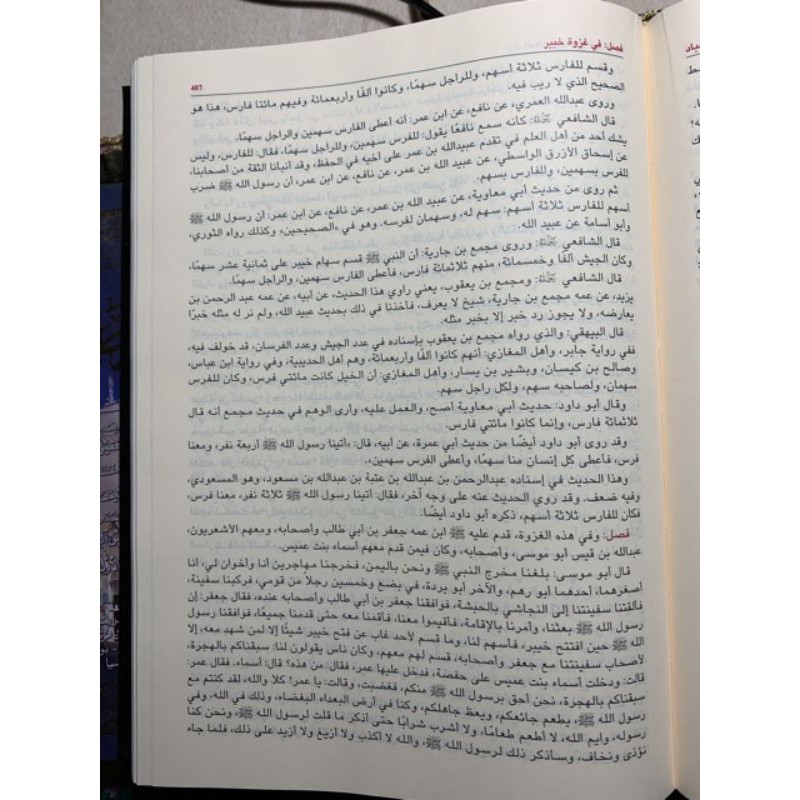 فصل: في غزوة خيبر
487
وقسم للفارس ثلاثة أسهم، وللراجل سهمًا، وكانوا ألفًا وأربعمائة وفيهم مائتا فارس، هذا هو
الصحيح الذي لا ريب فيه.
وروى عبدالله العمري، عن نافع، عن ابن عمر: أنه أعطى الفارس سهمين والراجل سهمًا.
قال الشافعي رحمه الله: كأنه سمع نافعًا يقول: للفرس سهمين، وللراجل سهمًا، فقال: للفارس، وليس
يشك أحد من أهل العلم في تقدم عبيدالله بن عمر على أخيه في الحفظ، وقد أنبأنا الثقة من أصحابنا،
عن إسحاق الأزرق الواسطي، عن عبيد الله بن عمر، عن نافع، عن ابن عمر، أن رسول الله ﷺ ضرب
للفرس بسهمين، وللفارس بسهم.
ثم روى من حديث أبي معاوية، عن عبيد الله بن عمر، عن نافع، عن ابن عمر: أن رسول الله ﷺ
أسهم للفارس ثلاثة أسهم: سهم له، وسهمان لفرسه. وهو في «الصحيحين»، وكذلك رواه الثوري،
وأبو أسامة عن عبيد الله.
قال الشافعي رحمه الله: وروى مجمع بن جارية: أن النبي ﷺ قسم سهام خيبر على ثمانية عشر سهمًا،
وكان الجيش ألفًا وخمسمائة، منهم ثلاثمائة فارس، فأعطى الفارس سهمين، والراجل سهمًا.
قال الشافعي رحمه الله: ومجمع بن يعقوب، يعني راوي هذا الحديث، عن أبيه، عن عمه عبد الرحمن بن
يزيد، عن عمه مجمع بن جارية، شيخ لا يعرف، فأخذنا في ذلك بحديث عبيد الله، ولم نر له مثله خبرًا
يعارضه، ولا يجوز رد خبر إلا بخبر مثله.
قال البيهقي: والذي رواه مجمع بن يعقوب بإسناده في عدد الجيش وعدد الفرسان، قد خولف فيه،
ففي رواية جابر، وأهل المغازي: أنهم كانوا ألفًا وأربعمائة، وهم أهل الحديبية، وفي رواية ابن عباس،
وصالح بن كيسان، وبشير بن يسار، وأهل المغازي: أن الخيل كانت مائتي فرس، وكان للفرس
سهمان، ولصاحبه سهم، ولكل راجل سهم.
وقال أبو داود: حديث أبي معاوية أصح، والعمل عليه، وأرى الوهم في حديث مجمع أنه قال
ثلاثمائة فارس، وإنما كانوا مائتي فارس.
وقد روى أبو داود أيضًا من حديث أبي عمرة، عن أبيه، قال: «أتينا رسول الله ﷺ أربعة نفر، ومعنا
فرس، فأعطى كل إنسان منا سهمًا، وأعطى الفرس سهمين».
وهذا الحديث في إسناده عبدالرحمن بن عبدالله بن عتبة بن عبدالله بن مسعود، وهو المسعودي،
وفيه ضعف. وقد روي الحديث عنه على وجه آخر، فقال: أتينا رسول الله ﷺ ثلاثة نفر، معنا فرس،
فكان للفارس ثلاثة أسهم، ذكره أبو داود أيضًا.
فصل: وفي هذه الغزوة، قدم عليه ﷺ ابن عمه جعفر بن أبي طالب وأصحابه، ومعهم الأشعريون،
عبدالله بن قيس أبو موسى، وأصحابه، وكان فيمن قدم معهم أسماء بنت عميس.
قال أبو موسى: بلغنا مخرج النبي ﷺ ونحن باليمن، فخرجنا مهاجرين أنا وأخوان لي، أنا
أصغرهما، أحدهما أبو رهم، والآخر أبو بردة، في بضع وخمسين رجلًا من قومي، فركبنا سفينة،
فألقتنا سفينتنا إلى النجاشي بالحبشة، فوافقنا جعفر بن أبي طالب وأصحابه عنده، فقال جعفر: إن
رسول الله ﷺ بعثنا، وأمرنا بالإقامة، فأقيموا معنا، فأقمنا معه حتى قدمنا جميعًا، فوافقنا رسول
الله ﷺ حين افتتح خيبر، فأسهم لنا، وما قسم لأحد غاب عن فتح خيبر شيئًا إلا لمن شهد معه، إلا
لأصحاب سفينتنا مع جعفر وأصحابه، قسم لهم معهم، وكان ناس يقولون لنا: سبقناكم بالهجرة،
قالت: ودخلت أسماء بنت عميس على حفصة، فدخل عليها عمر، فقال: من هذه؟ قال: أسماء. فقال عمر:
سبقناكم بالهجرة، نحن أحق برسول الله ﷺ منكم، فغضبت، وقالت: يا عمر! كلا والله، لقد كنتم مع
رسول الله ﷺ، يطعم جائعكم، ويعظ جاهلكم، وكنا في أرض البعداء البغضاء، وذلك في الله، وفي
رسوله، وايم الله، لا أطعم طعامًا، ولا أشرب شرابًا حتى أذكر ما قلت لرسول الله ﷺ، ونحن كنا
نؤذى ونخاف، وسأذكر ذلك لرسول الله ﷺ، والله لا أكذب ولا أزيغ ولا أزيد على ذلك، فلما جاء